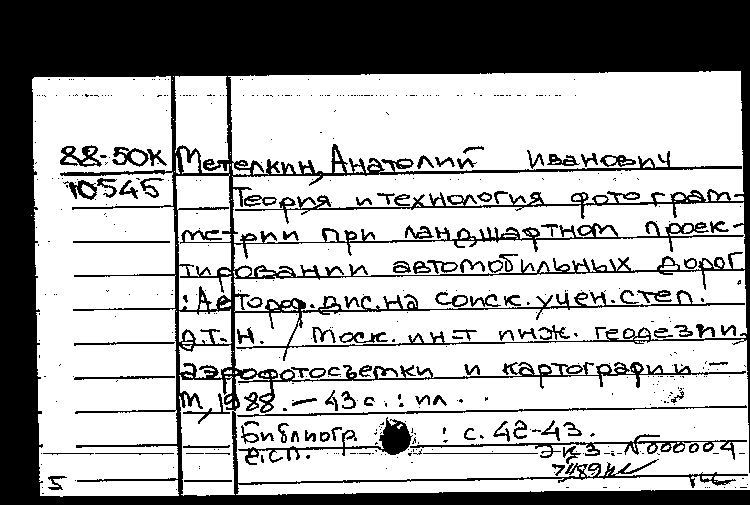 88-50К Метелкин, Анатолий Иванович
10545 Теория и технология фотограм-
метрии при ландшафтном проек-
тировании автомобильных дорог
: Автореф. дис. на соиск. учен. степ.
д.т.н. / Моск. ин-т инж. геодезии,
аэрофотосъемки и картографии –
М, 1988. – 43 с. : ил.
Библиогр. : с. 42-43.
в.сп. Экз. N000004
5